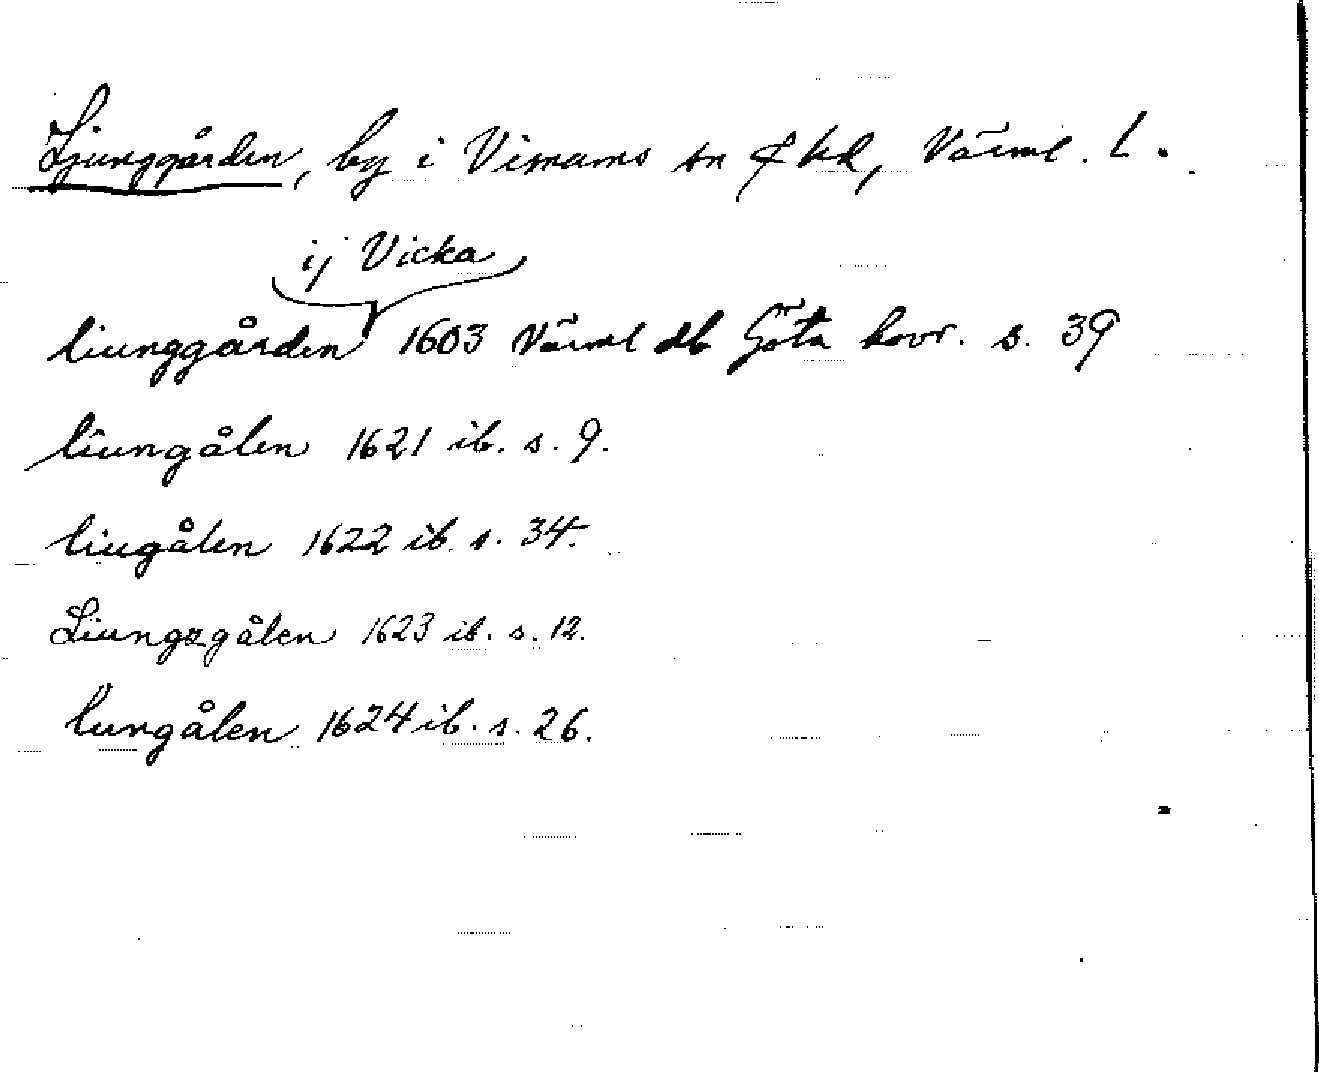 Ljunggården, by i Visnums sn & hd, Värml. l.
ij Vicka
liunggården 1603 Värml db Göta hovr. s. 39
liungålen 1621 ib. s. 9.
liugålen 1622 ib. s. 34.
Liungzgålen 1623 ib. s. 12.
lungålen 1624 ib. s. 26.